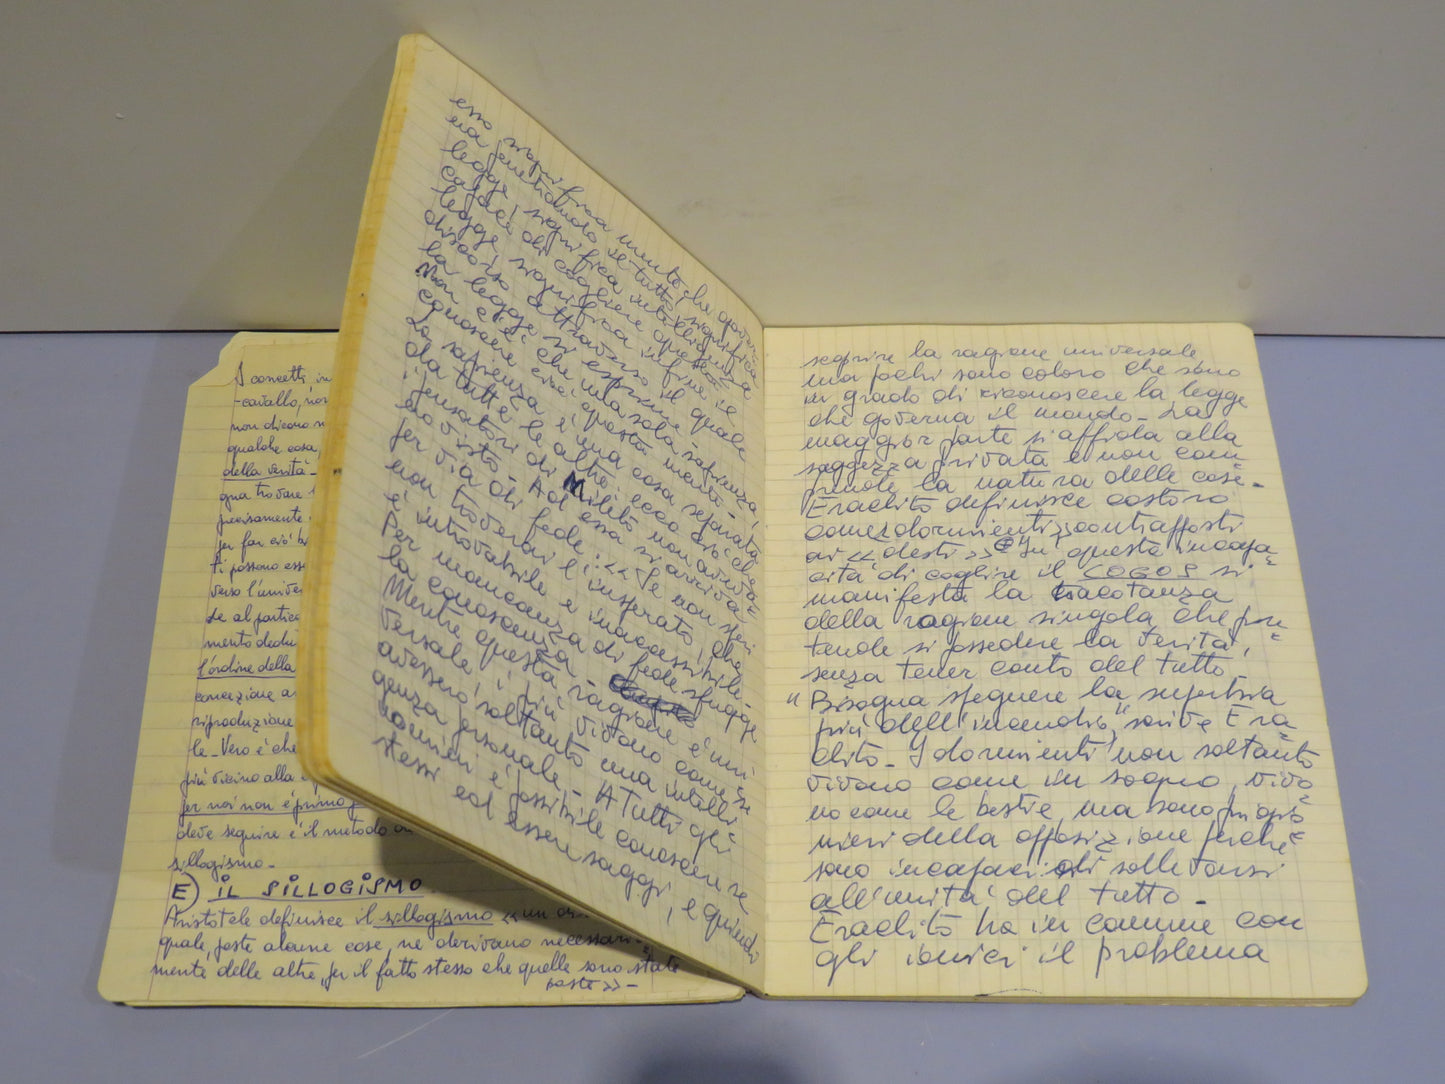 I concetti, in
-cavallo, non
non dicono n
qualche cosa,
della verità-
qua trovare l
precisamente
per far ciò bi
ti possono esse
verso l'univer
le al partico
mento dedu
l'ordine della
concezione a
riproduzione
le- Vero è che
più vicino alla
per noi non è primo p
deve seguire è il metodo d
sillogismo-
E) IL SILLOGISMO
Aristotele definisce il sillogismo << un di
quale, poste alcune cose, ne derivano necessaria-
mente delle altre, per il fatto stesso che quelle sono state
poste >> -
esso significa mente che governa
penetrando il tutto, significa
legge, significa intelligenza
capace di cogliere questa
legge, significa infine il
discorso attraverso il quale
la legge si esprime-
Non c'è che una sola sapienza,
conoscere cioè questa mente-
La sapienza è una cosa separata
da tutte le altre: ecco ciò che
i pensatori di Mileto non aveva-
no visto- Ad essa si arriva
per via di fede: << Se non speri
non troverai l'insperato, che
è introvabile e inaccessibile-
Per mancanza di fede sfugge
la conoscenza-
Mentre questa ragione è uni-
versale, i più vivono come se
avessero soltanto una intelli-
genza personale- A tutti gli
uomini è possibile conoscere se
stessi ed essere saggi, e quindi
seguire la ragione universale,
ma pochi sono coloro che sono
in grado di riconoscere la legge
che governa il mondo- La
maggior parte si affida alla
saggezza privata e non com-
prende la natura delle cose-
Eraclito definisce costoro
come << dormienti >> contrapposti
ai << desti >> e in questa incapa-
cità di cogliere il LOGOS si
manifesta la tracotanza
della ragione singola, che pre-
tende di possedere la verità,
senza tener conto del tutto-
" Bisogna spegnere la superbia
più dell'incendio", scrive Era-
clito- I dormienti non soltanto
vivono come in sogno, vivo-
no come le bestie, ma sono prigio-
nieri della opposizione perché
sono incapaci di sollevarsi
all'unità del tutto-
Eraclito ha in comune con
gli ionici il problema